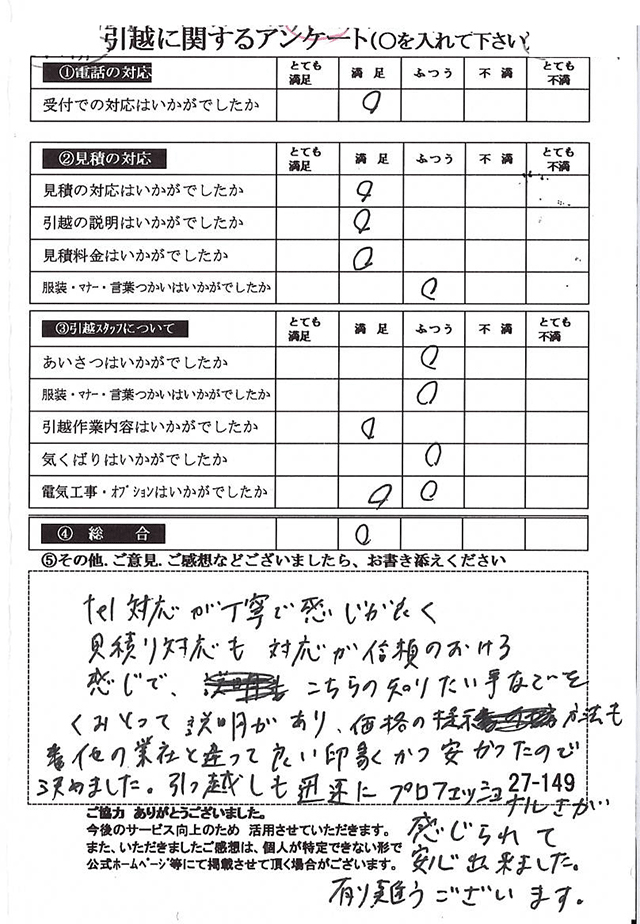 引越に関するアンケート(○を入れて下さい)
①電話の対応 とても満足 満足 ふつう 不満 とても不満
受付での対応はいかがでしたか ○
②見積の対応 とても満足 満足 ふつう 不満 とても不満
見積の対応はいかがでしたか ○
引越の説明はいかがでしたか ○
見積料金はいかがでしたか ○
服装・マナー・言葉つかいはいかがでしたか ○
③引越スタッフについて とても満足 満足 ふつう 不満 とても不満
あいさつはいかがでしたか ○
服装・マナー・言葉つかいはいかがでしたか ○
引越作業内容はいかがでしたか ○
気くばりはいかがでしたか ○
電気工事・オプションはいかがでしたか ○ ○
④ 総 合 ○
⑤その他.ご意見.ご感想などございましたら、お書き添えください
tel対応が丁寧で感じが良く
見積り対応も 対応が信頼のおける
感じで、こちらの知りたい事などを
くみとって説明があり、価格の提示方法も
他の業社と違って良い印象かつ安かったので
決めました。引っ越しも迅速にプロフェッショナルさが
27-149
感じられて
安心出来ました。
有り難うございます。
ご協力 ありがとうございました。
今後のサービス向上のため 活用させていただきます。
また、いただきましたご感想は、個人が特定できない形で
公式ホームページ等にて掲載させて頂く場合がございます。